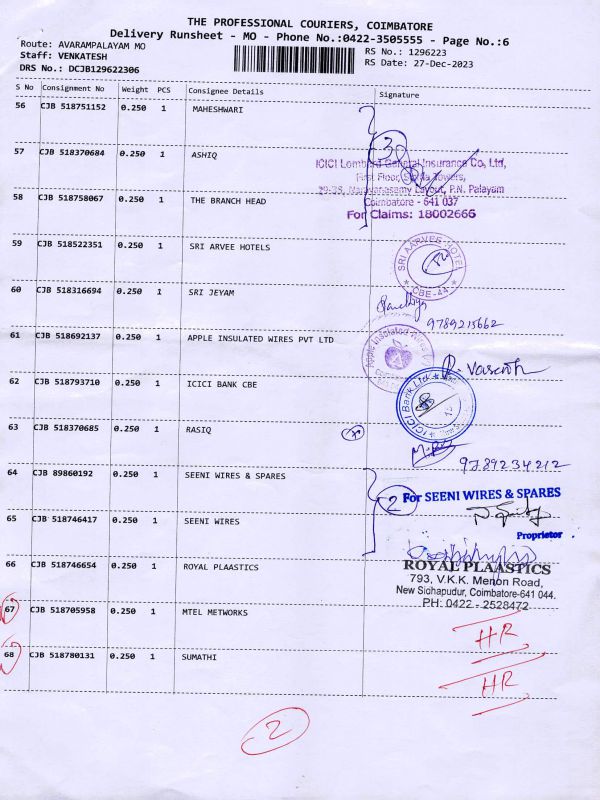 THE PROFESSIONAL COURIERS, COIMBATORE
Delivery Runsheet - MO - Phone No.:0422-3505555 - Page No.:6
Route: AVARAMPALAYAM MO
RS No.: 1296223
Staff: VENKATESH
RS Date: 27-Dec-2023
DRS No.: DCJB129622306
S No Consignment No Weight PCS Consignee Details Signature
56 CJB 518751152 0.250 1 MAHESHWARI
3
57 CJB 518370684 0.250 1 ASHIQ
ICICI Lombard General Insurance Co, Ltd,
First Floor, Towers,
Layout, P.N. Palayam
58 CJB 518758067 0.250 1 THE BRANCH HEAD
Coimbatore - 641 037
For Claims: 18002666
59 CJB 518522351 0.250 1 SRI ARVEE HOTELS
SRI AARVEE HOTEL
CBE-44
60 CJB 518316694 0.250 1 SRI JEYAM
9789215662
61 CJB 518692137 0.250 1 APPLE INSULATED WIRES PVT LTD
Apple Insulated Wires
R. Vasanth
62 CJB 518793710 0.250 1 ICICI BANK CBE
ICICI Bank Ltd
63 CJB 518370685 0.250 1 RASIQ
9789234212
64 CJB 89860192 0.250 1 SEENI WIRES & SPARES
2
For SEENI WIRES & SPARES
65 CJB 518746417 0.250 1 SEENI WIRES
Proprietor
66 CJB 518746654 0.250 1 ROYAL PLAASTICS
ROYAL PLAASTICS
793, V.K.K. Menon Road,
New Sidhapudur, Coimbatore-641 044.
PH: 0422 - 2528472
67 CJB 518705958 0.250 1 MTEL METWORKS
HR
68 CJB 518780131 0.250 1 SUMATHI
HR
2